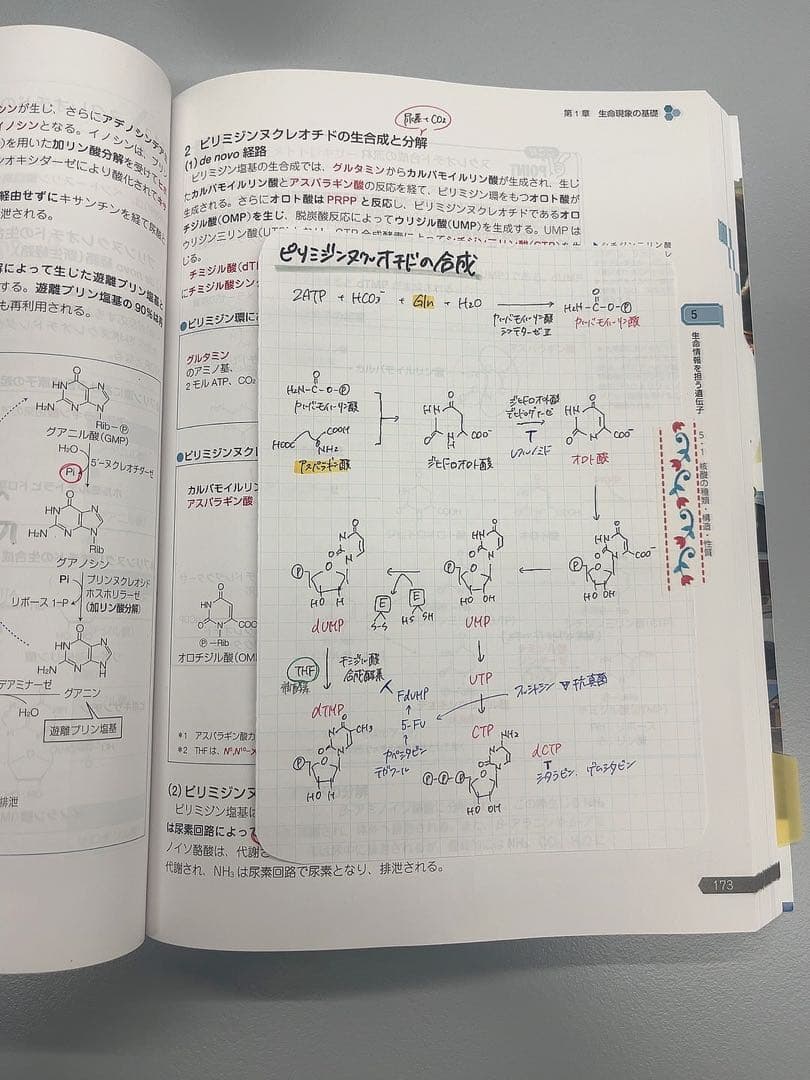 シンが生じ、さらにアデノシンデア
イノシンとなる。イノシンは、プリン
)を用いた加リン酸分解を受けてヒポ
オキシダーゼにより酸化されてキサ
経由せずにキサンチンを経て尿酸
泄される。
解によって生じた遊離プリン塩基と
する。遊離プリン塩基の90%は再
も再利用される。
グアニル酸(GMP)
H₂O
5′-ヌクレオチダーゼ
Pi
Rib
グアノシン
Pi
プリンヌクレオシド
ホスホリラーゼ
(加リン酸分解)
リボース 1-P
デアミナーゼ
グアニン
H₂O
遊離プリン塩基
排泄
尿素+CO₂
第1章 生命現象の基礎
2 ピリミジンヌクレオチドの生合成と分解
(1) de novo 経路
ピリミジン塩基の生合成では、グルタミンからカルバモイルリン酸が生成され、生じ
たカルバモイルリン酸とアスパラギン酸の反応を経て、ピリミジン環をもつオロト酸が
生成される。さらにオロト酸は PRPP と反応し、ピリミジンヌクレオチドであるオロ
チジル酸(OMP)を生じ、脱炭酸反応によってウリジル酸(UMP)を生成する。UMP は
ウリジン三リン酸(UTP)
じる。
チミジル酸(dT
にチミジル酸シン
●ピリミジン環に
グルタミン
のアミノ基、
2 モル ATP、CO₂
●ピリミジンヌク
カルバモイルリン
アスパラギン酸
オロチジル酸(OM
*1 アスパラギン酸カ
*2 THFは、N⁵,N¹⁰-メ
(2) ピリミジンヌ
ピリミジン塩基は
は尿素回路によって
ノイソ酪酸は、代謝さ
代謝され、NH₃ は尿素回路で尿素となり、排泄される。
ピリミジンヌクレオチドの合成
2ATP + HCO₃⁻ + Gln + H₂O
カルバモイルリン酸
シンテターゼⅡ
H₂N-C-O-Ⓟ
O
カルバモイルリン酸
H₂N-C-O-Ⓟ
O
カルバモイルリン酸
HOOC
COOH
NH₂
アスパラギン酸
COO⁻
ジヒドロオロト酸
ジヒドロオロト酸
デヒドロゲナーゼ
レフルノミド
COO⁻
オロト酸
COO⁻
HO OH
UMP
E
S-S
E
HS SH
dUMP
HO H
THF
補酵素
チミジル酸
合成酵素
dTMP
CH₃
HO H
FdUMP
5-FU
カペシタビン
テガフール
フルシトシン ▽ 抗真菌
UTP
CTP
NH₂
Ⓟ-Ⓟ-Ⓟ-O
HO OH
dCTP
シタラビン、ゲムシタビン
5
生命情報を担う遺伝子
5・1 核酸の種類・構造・性質
173